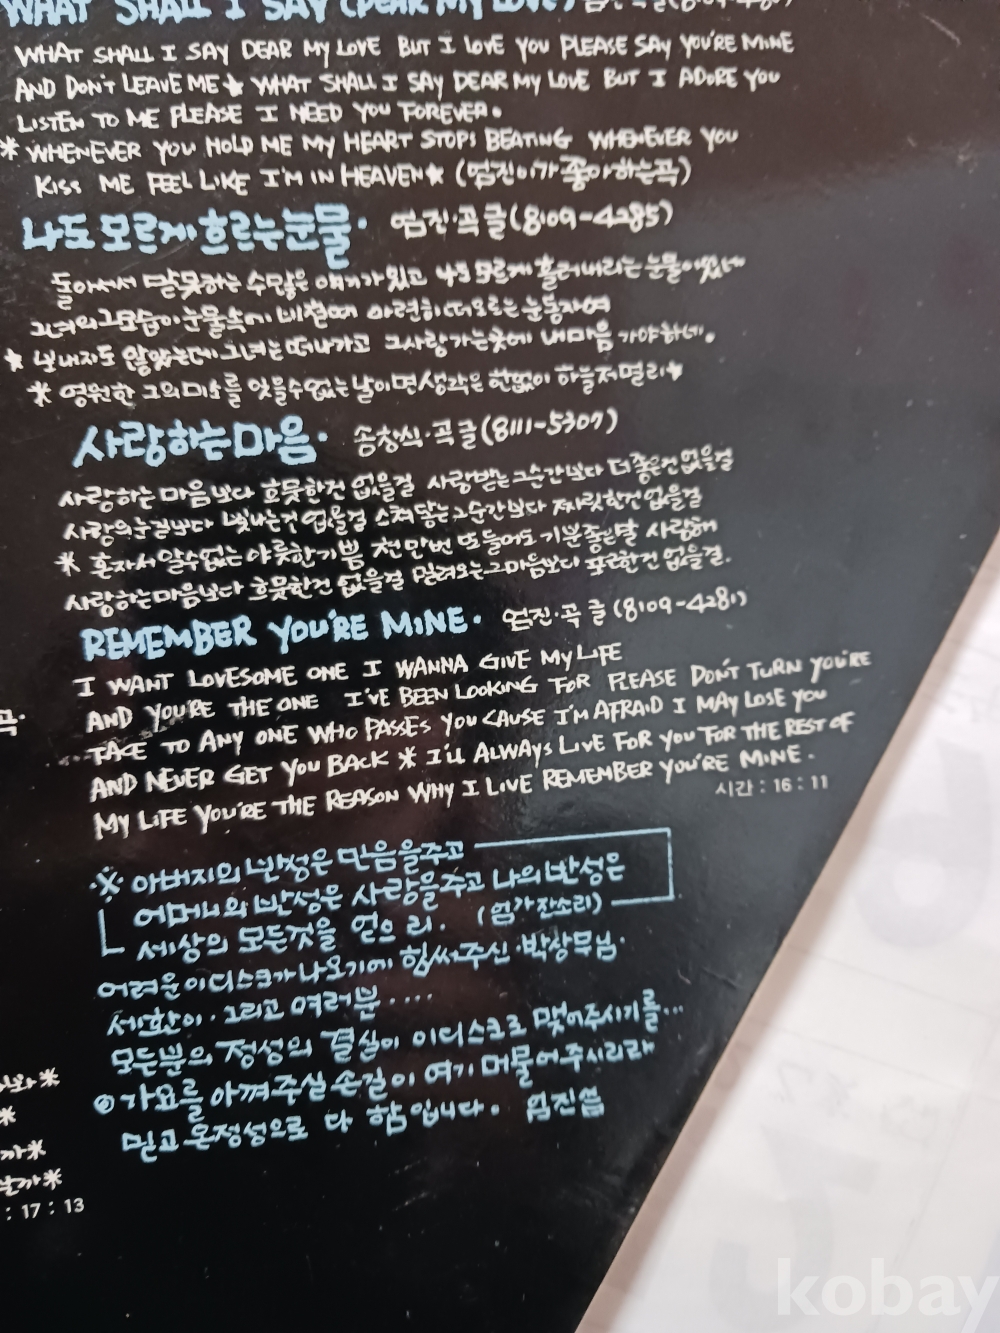 WHAT SHALL I SAY (DEAR MY LOVE)
WHAT SHALL I SAY DEAR MY LOVE BUT I LOVE YOU PLEASE SAY YOU'RE MINE
AND DON'T LEAVE ME★ WHAT SHALL I SAY DEAR MY LOVE BUT I ADORE YOU
LISTEN TO ME PLEASE I NEED YOU FOREVER.
* WHENEVER YOU HOLD ME MY HEART STOPS BEATING WHENEVER YOU
KISS ME FEEL LIKE I'M IN HEAVEN★ (엄진이가 좋아하는곡)
나도 모르게 흐르는 눈물· 엄진·곡 글(8109-4285)
돌아서서 말못하는 수많은 얘기가 있고 나도 모르게 흘러내리는 눈물이 있네
그녀의 그모습이 눈물속에 비칠때 아련히 떠오르는 눈동자여
★ 보내지도 않았는데 그녀는 떠나가고 그사랑 가는곳에 내마음 가야하네.
* 영원한 그의미소를 잊을수없는 날이면 생각은 한없이 하늘저멀리★
사랑하는 마음· 송창식·곡 글(8111-5307)
사랑하는 마음보다 흐뭇한건 없을걸 사랑받는 그순간보다 더 좋은건 없을걸
사랑의 눈길보다 빛나는건 없을걸 스쳐닿는 그순간보다 짜릿한건 없을걸
* 혼자서 알수없는 야릇한 기쁨 천만번 또 들어도 기분좋은말 사랑해
사랑하는 마음보다 흐뭇한건 없을걸 밀려오는 그마음보다 포근한건 없을걸.
REMEMBER YOU'RE MINE· 엄진·곡 글(8109-4281)
I WANT LOVESOME ONE I WANNA GIVE MY LIFE
AND YOU'RE THE ONE I'VE BEEN LOOKING FOR PLEASE DON'T TURN YOU'RE
....TAKE TO ANY ONE WHO PASSES YOU CAUSE I'M AFRAID I MAY LOSE YOU
AND NEVER GET YOU BACK * I'LL ALWAYS LIVE FOR YOU FOR THE REST OF
MY LIFE YOU'RE THE REASON WHY I LIVE REMEMBER YOU'RE MINE.
시간 : 16 : 11
※ 아버지의 반성은 믿음을주고
어머니의 반성은 사랑을주고 나의 반성은
세상의 모든것을 얻으리. (엄가잔소리)
어려운 이디스크가 나오기에 힘써주신·박상무님·
세환이·그리고 여러분····
모두분의 정성의 결실이 이디스크로 맺어주시기를...
◎ 가요를 아껴주실 손길이 여기 머물어 주시리라
믿고 온정성으로 다 함 입니다. 엄진씀
: 17 : 13
kobay